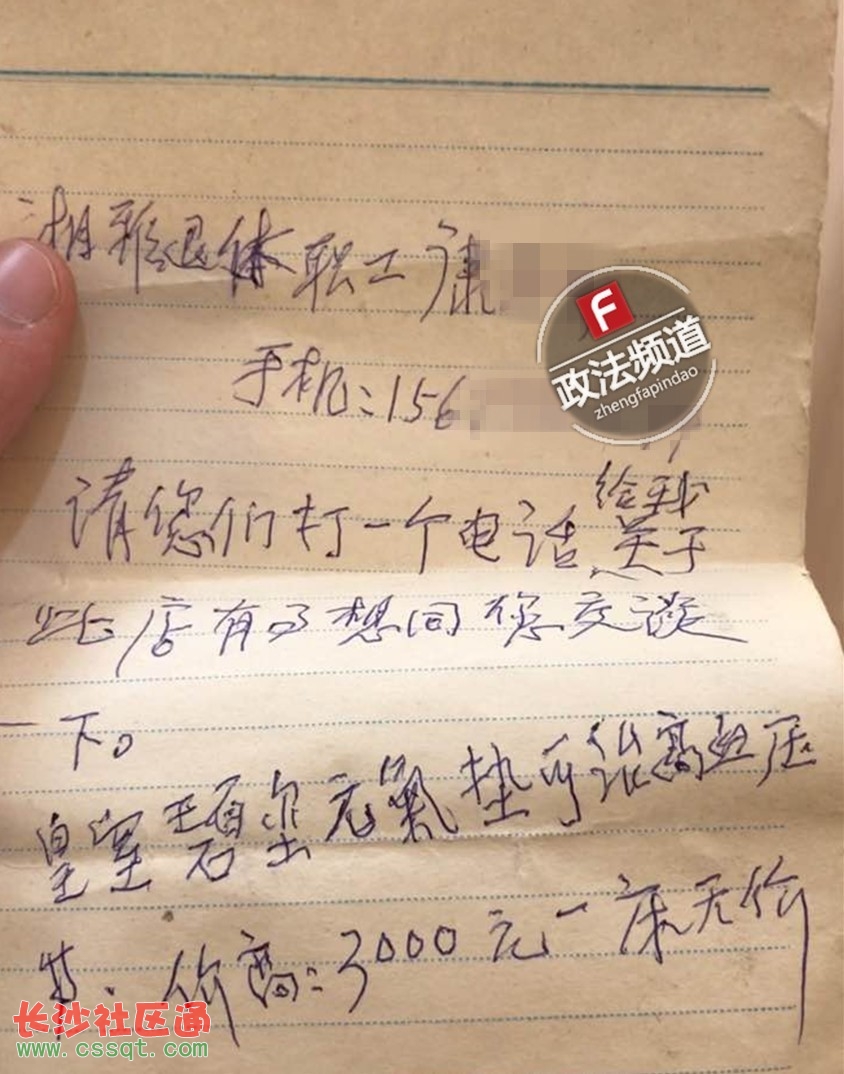 湘雅退休职工康
手机:156
F
政法频道
zhengfapindao
请您们打一个电话给我关于
此店有了想同您交谈
一下。
皇室碧玺元气垫可
高血压
价高:3000元一床无价
长沙社区通
www.cssqt.com